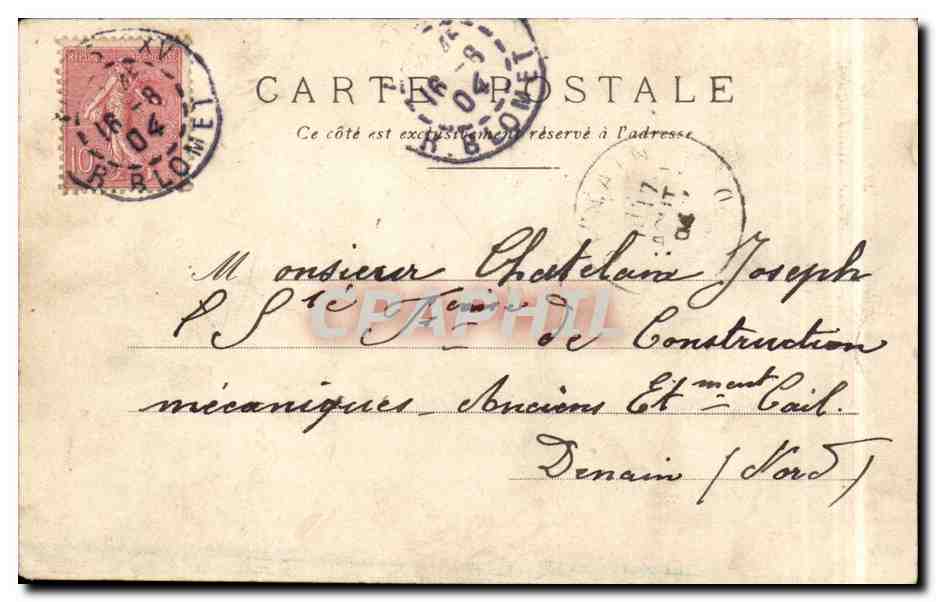 CARTE POSTALE
Ce côté est exclusivement réservé à l'adresse
XV
16 - 8
04
R. BLOMET
10
16 - 8
04
R. BLOMET
17
04
CPAPHIL
Monsieur Chatelain Joseph
Sté Fçaise de Construction
mécaniques - Anciens Etment Cail.
Denain (Nord)